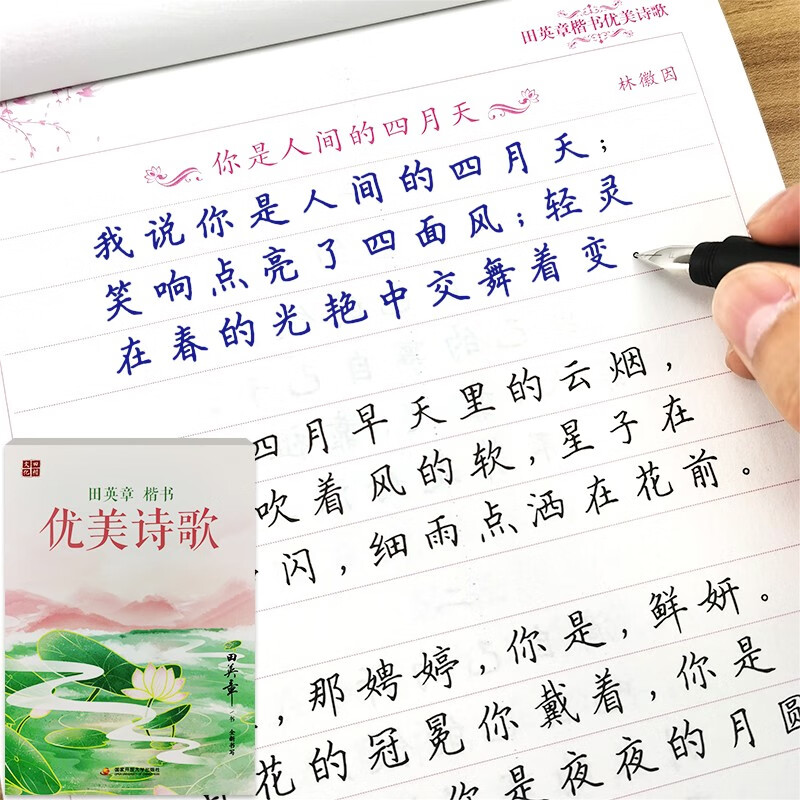 田英章楷书优美诗歌
林徽因
你是人间的四月天
我说你是人间的四月天；
笑响点亮了四面风；轻灵
在春的光艳中交舞着变
四月早天里的云烟，
吹着风的软，星子在
闪，细雨点洒在花前。
，那娉婷，你是，鲜妍。
花的冠冕你戴着，你是
你是夜夜的月圆
田英章 楷书
优美诗歌
田英章
书
全新书写
国家开放大学出版社